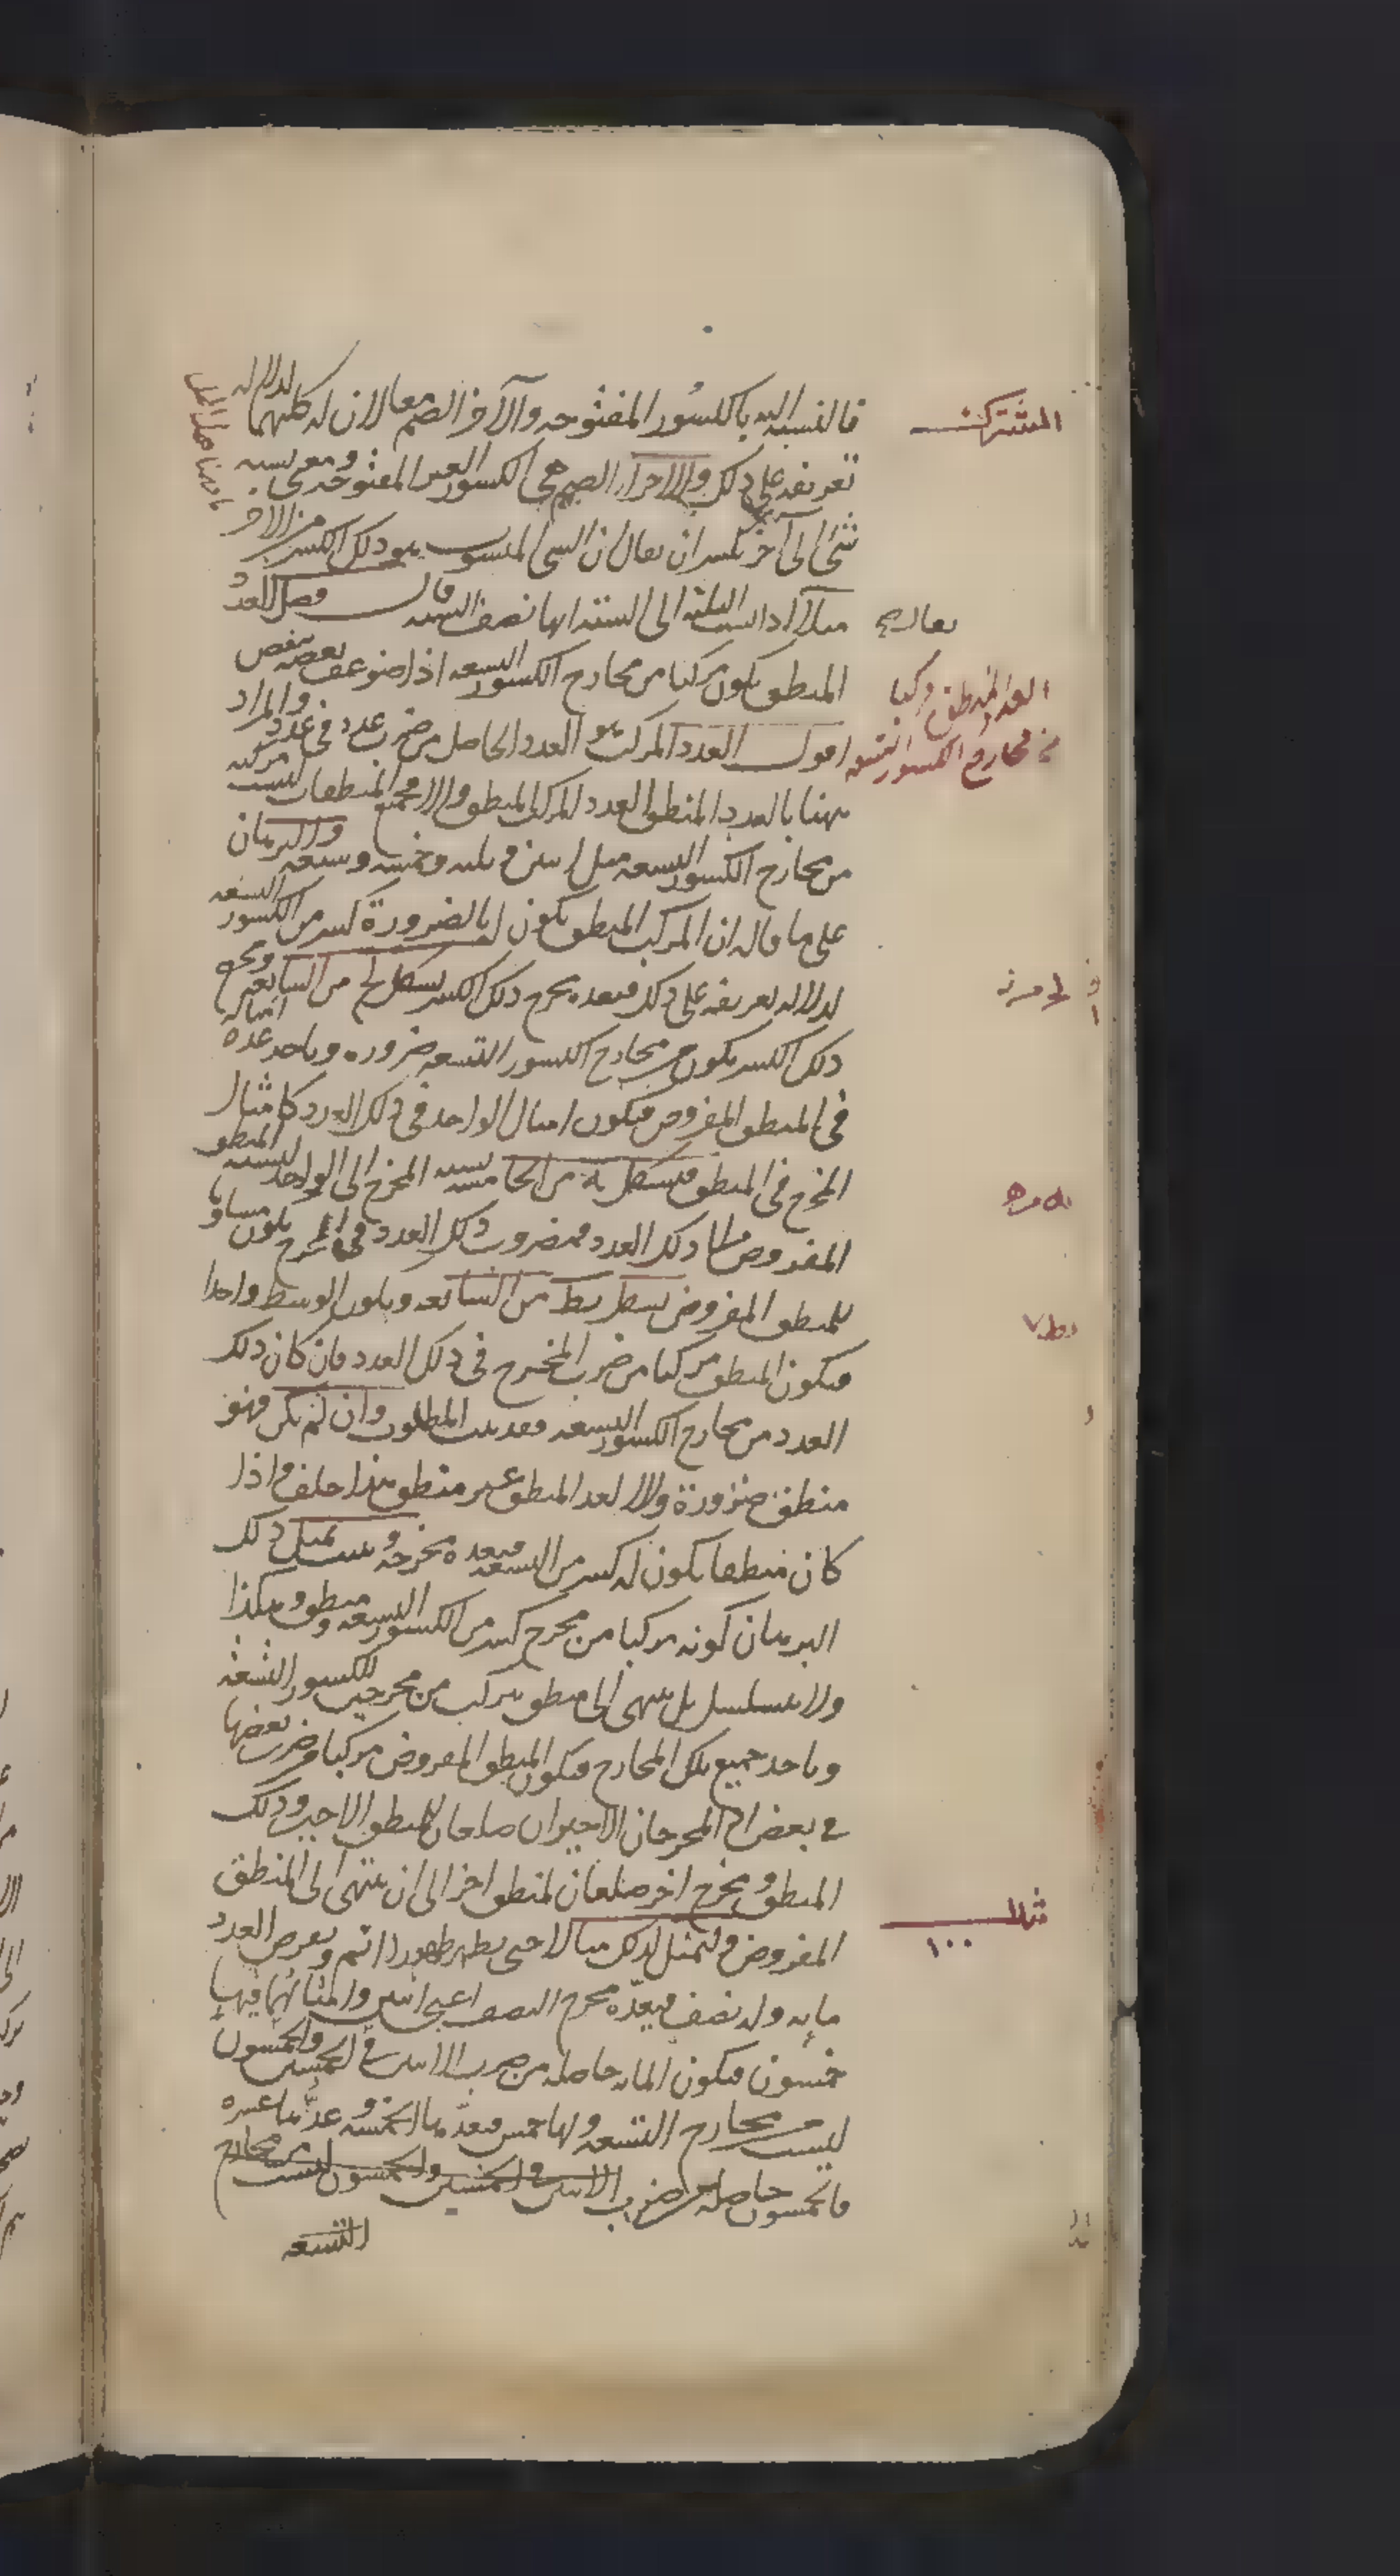 المشترك
فالنسبة اليه بالكسور المفتوحة والآخر الصم معا لان له كليهما لدلالة
تعريفه على ذلك والاجزاء الصم هي الكسور الغير المفتوحة ومعنى نسبة
شئ الى آخر بكسر ان يقال ان الشئ المنسوب هو ذلك الكسر من الآخر
مثلا اذا نسبت الثلثة الى الستة انها نصف الستة قال فصل العدد
يقال صح
المنطق يكون مركبا من مخارج الكسور التسعة اذا ضوعف بعضه ببعض
العدد المنطق مركبا
من مخارج الكسور التسعة
اقول العدد المركب هو العدد الحاصل من ضرب عدد في عدد والمراد
ههنا بالعدد المنطق العدد المركب المنطق والا فجميع المنطقات ليست مركبة
من مخارج الكسور التسعة مثل اثنين وثلثه وخمسه وسبعه والبرهان
على ما قاله ان المركب المنطق يكون له بالضرورة كسر من الكسور التسعة
لدلالة تعريفه على ذلك فيعده مخرج ذلك الكسر بشكل لح من السابعة ومخرج
ذلك الكسر يكون من مخارج الكسور التسعة ضروره وناخذ عدة امثاله
في المنطق المفروض فيكون امثال الواحد في ذلك العدد كامثال
المخرج في المنطق فبشكل يه من الخامسة نسبة المخرج الى الواحد كنسبة المنطق
المفروض الى ذلك العدد فمضروب ذلك العدد في المخرج يكون مساو
للمنطق المفروض بشكل يط من السابعه ويكون الوسط واحدا
فيكون المنطق مركبا من ضرب المخرج في ذلك العدد فان كان ذلك
العدد من مخارج الكسور التسعه فقد ثبت المطلوب وان لم يكن فهو
منطق ضرورة والا لعد المنطق غير منطق هذا خلف واذا
كان منطقا يكون له كسر من التسعة فيعده مخرجه وثبت بمثل ذلك
البرهان كونه مركبا من مخرج كسر من الكسور التسعه ومنطق وهكذا
ولا يتسلسل بل ينتهى الى منطق يتركب من مخرجين للكسور التسعه
وناخذ جميع تلك المخارج فيكون المنطق المفروض مركبا من ضرب بعضها
في بعض اذ المخرجان الاخيران ضلعان للمنطق الاخير وذلك
المنطق ومخرج اخر ضلعان لمنطق اخر الى ان ينتهى الى المنطق
المفروض ولنمثل لذلك مثالا حتى يظهر ظهورا اتم ونفرض العدد
مثلا
١٠٠
مائه وله نصف فيعده مخرج النصف اعنى اثنين وامثالهما فيها
خمسون فيكون المائه حاصله من ضرب الاثنين في الخمسين والخمسون
ليست من مخارج التسعه ولها خمس فيعدها الخمسه وعدتها عشره
فالخمسون حاصله من ضرب الاثنين في الخمسين والخمسون ليست من مخارج
التسعه